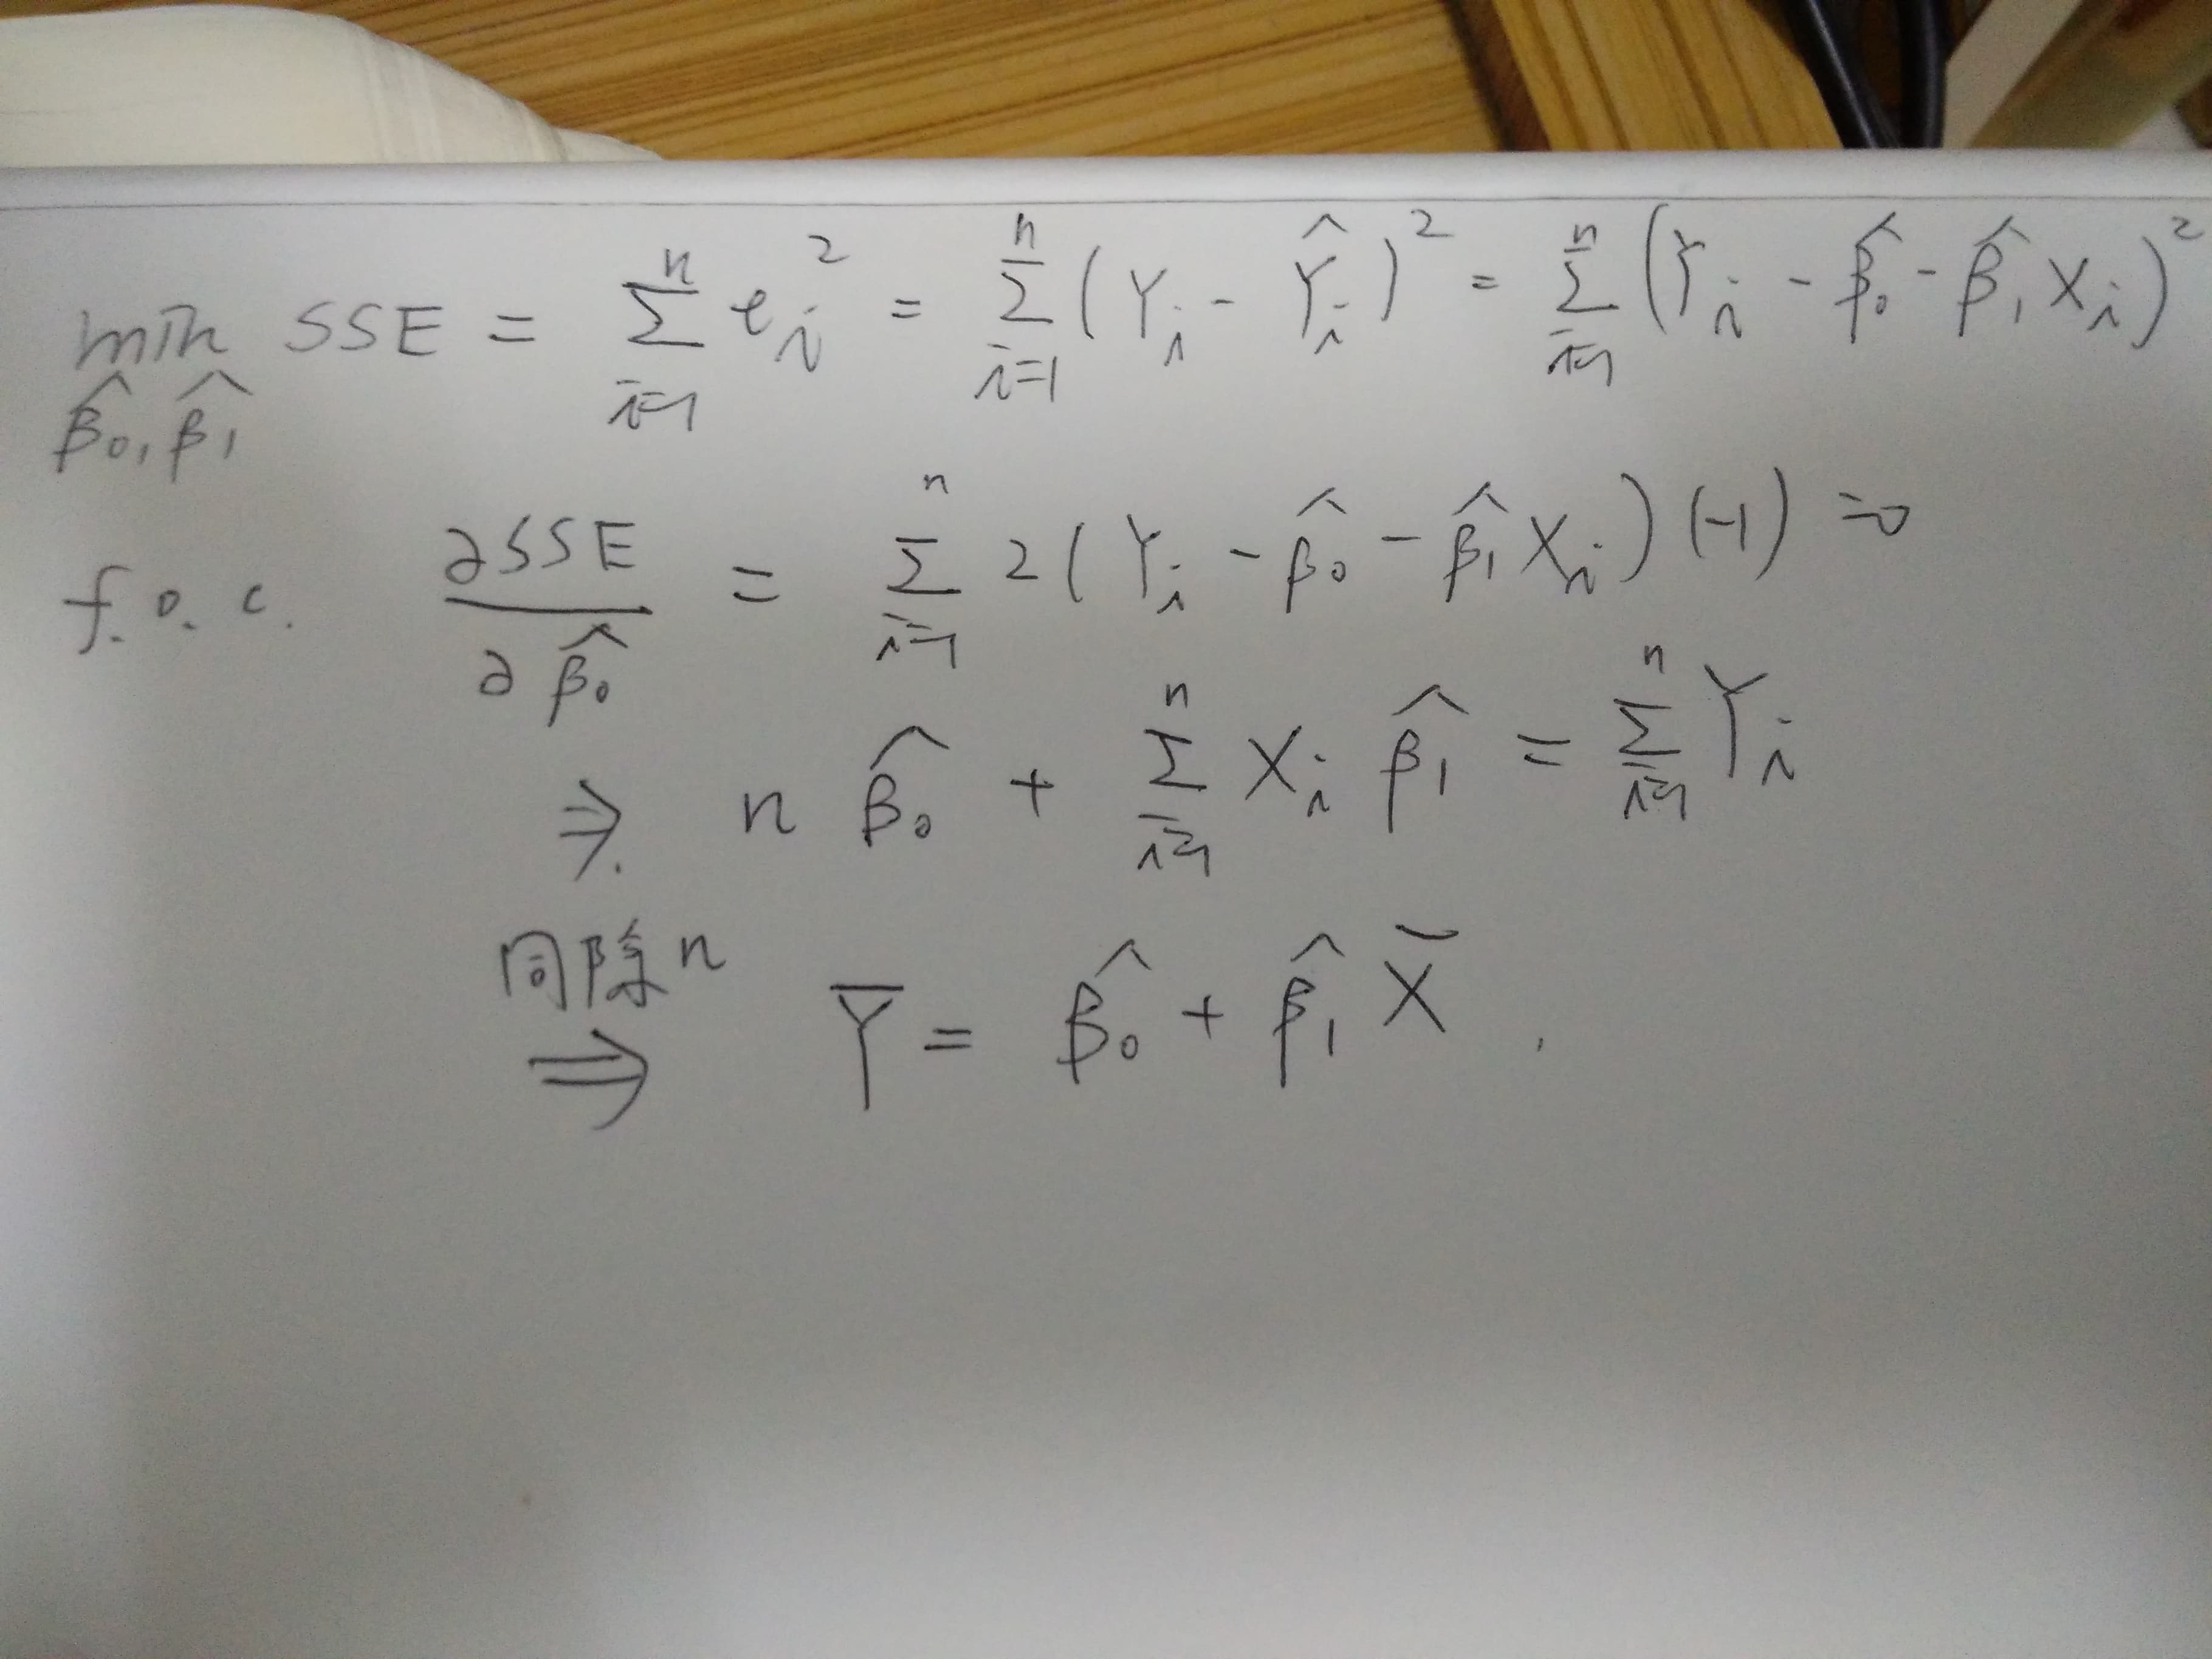 min SSE = Σ_{i=1}^{n} e_i² = Σ_{i=1}^{n} (Y_i - Ŷ_i)² = Σ_{i=1}^{n} (Y_i - β̂₀ - β̂₁ X_i)²
β̂₀, β̂₁
f.o.c. ∂SSE / ∂β̂₀ = Σ_{i=1}^{n} 2(Y_i - β̂₀ - β̂₁ X_i)(-1) = 0
⇒. n β̂₀ + Σ_{i=1}^{n} X_i β̂₁ = Σ_{i=1}^{n} Y_i
同除n
⇒ Ȳ = β̂₀ + β̂₁ X̄ .